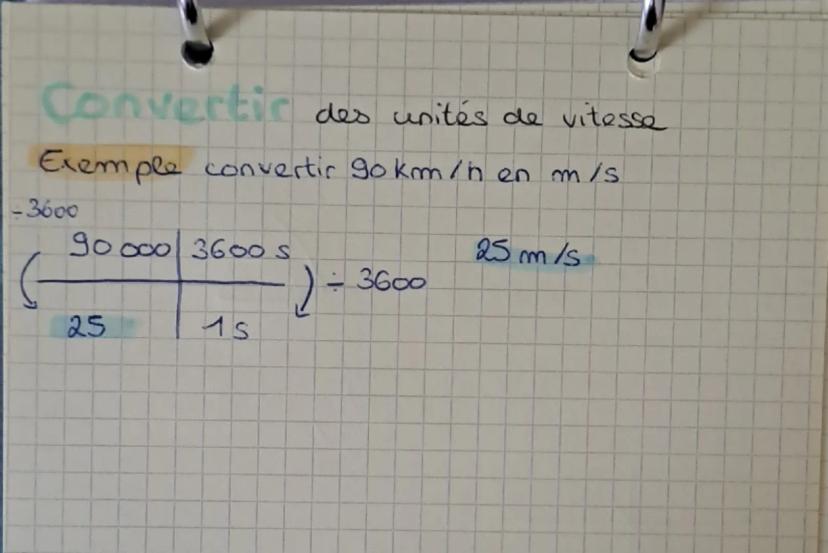 Convertir des unités de vitesse
Exemple convertir 90 km/h en m/s
÷3600
90 000 | 3600 s
÷ 3600
25 m/s
25 | 1 s